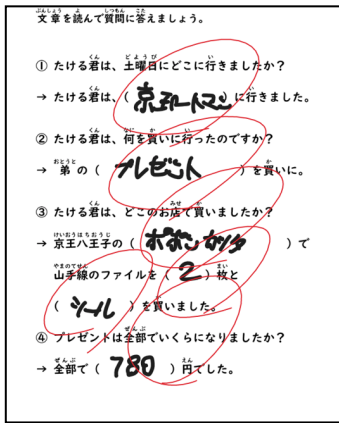 文章を読んで質問に答えましょう。
① たける君は、土曜日にどこに行きましたか？
→ たける君は、（ 京王アートマン に行きました。
② たける君は、何を買いに行ったのですか？
→ 弟の（ プレゼント ）を買いに。
③ たける君は、どこのお店で買いましたか？
→ 京王八王子の（ ポポンデッタ ）で
山手線のファイルを（ 2 ）枚と
（ シール ）を買いました。
④ プレゼントは全部でいくらになりましたか？
→ 全部で（ 780 ）円でした。